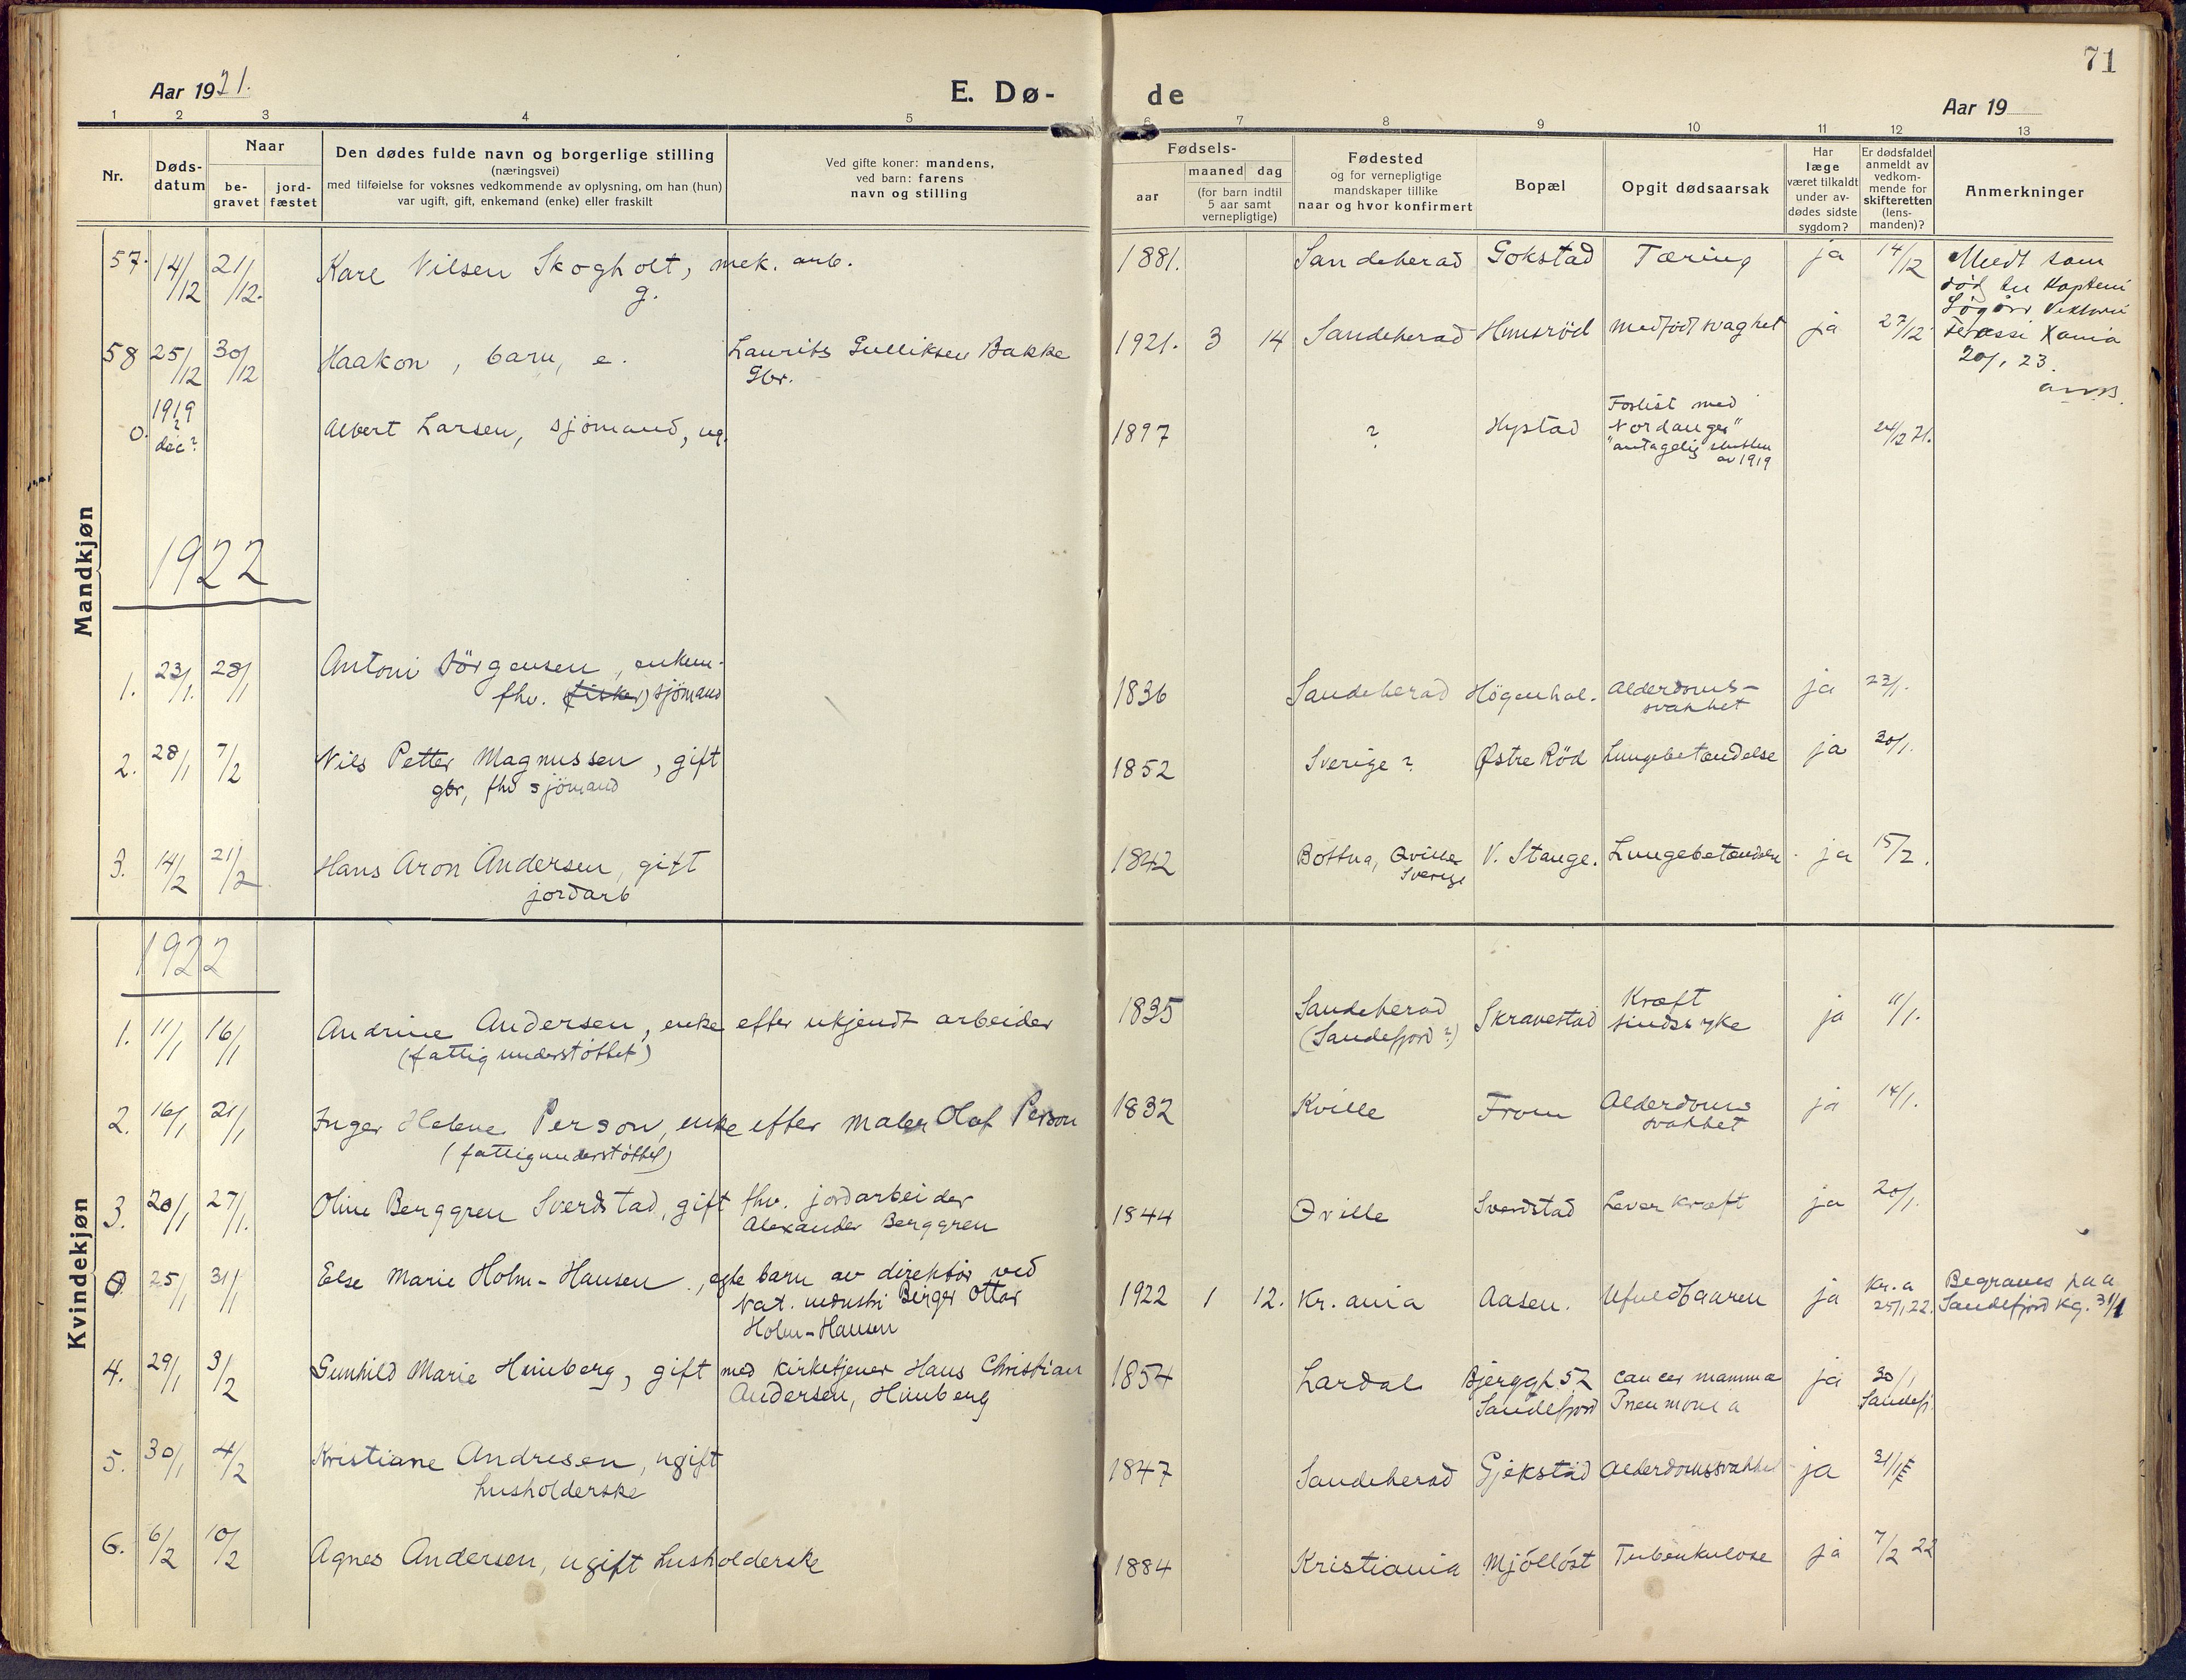 71
Aar 1921.
E. Dø-
de
Aar 19
1 2 3 4 5 6 7 8 9 10 11 12 13
Nr.
Døds-
datum
Naar
be-
gravet
jord-
fæstet
Den dødes fulde navn og borgerlige stilling
(næringsvei)
med tilføielse for voksnes vedkommende av oplysning, om han (hun)
var ugift, gift, enkemand (enke) eller fraskilt
Ved gifte koner: mandens,
ved barn: farens
navn og stilling
Fødsels-
aar
maaned dag
(for barn indtil
5 aar samt
vernepligtige)
Fødested
og for vernepligtige
mandskaper tillike
naar og hvor konfirmert
Bopæl
Opgit dødsaarsak
Har
læge
været tilkaldt
under av-
dødes sidste
sygdom?
Er dødsfaldet
anmeldt av
vedkom-
mende for
skifteretten
(lens-
manden)?
Anmerkninger
Mandkjøn
57. 14/12 21/12. Karl Nilsen Skogholt, mek. arb. 1881. Sandeherad Gokstad Tæring ja 14/12 Meldt som
g.
20/1 23.
58 25/12 30/12 Haakon, barn, e. Laurits Gulliksen Bakke 1921. 3 14 Sandeherad Hunsrød medfødt svaghet ja 27/12
Gbr.
0. 1919 ? dec? Albert Larsen, sjømand, ug. 1897 ? Hystad Forlist med 24/12 21.
"Nordanger"
antagelig slutten
av 1919
1922
1. 23/1. 28/1 Antoni Jörgensen, enkem. 1836 Sandeherad Högenhal. Alderdoms- ja 23/1.
fhv. (fisker) sjömand svakhet
2. 28/1 7/2 Nils Petter Magnussen, gift 1852 Sverige? Østre Röd Lungebetændelse ja 30/1.
gbr, fhv sjömand
3. 14/2 21/2 Hans Aron Andersen, gift 1842 Bottna, Qville V. Stange. Lungebetændelse ja 15/2.
jordarb Sverige
Kvindekjøn
1922
1. 11/1 16/1 Andrine Andersen, enke efter ukjendt arbeider 1835 Sandeherad Skravestad Kræft ja 11/1.
(fattigunderstöttet) (Sandefjord?) sindssyke
2. 16/1 21/1 Inger Helene Person, enke efter maler Olaf Person 1832 Kville From Alderdoms ja 14/1.
(fattigunderstöttet) svakhet
3. 20/1 27/1. Oline Berggren Sverdstad, gift fhv. jordarbeider 1844 Qville Sverdstad Leverkræft ja 20/1.
Alexander Berggren
0 25/1 31/1 Else Marie Holm-Hansen, egte barn av direktör ved 1922 1 12. Kr.ania Aasen. Ufuldbaaren ja Kr.a 25/1 22. Begraves paa
Nat. industri Birger Ottar Sandefjord kg. 31/1
Holm-Hansen
4. 29/1 3/2 Gunhild Marie Hinberg, gift med kirketjener Hans Christian 1854 Lardal Bjerggt 52 cancer mamma ja 30/1
Andersen, Hinberg Sandefjord Pneumonia Sandefj.
5. 30/1 4/2 Kristiane Andresen, ugift 1847 Sandeherad Gjekstad Alderdomssvakhet ja 31/1
husholderske
6. 6/2 10/2 Agnes Andersen, ugift husholderske 1884 Kristiania Mjölløst Tuberkulose ja 7/2 22